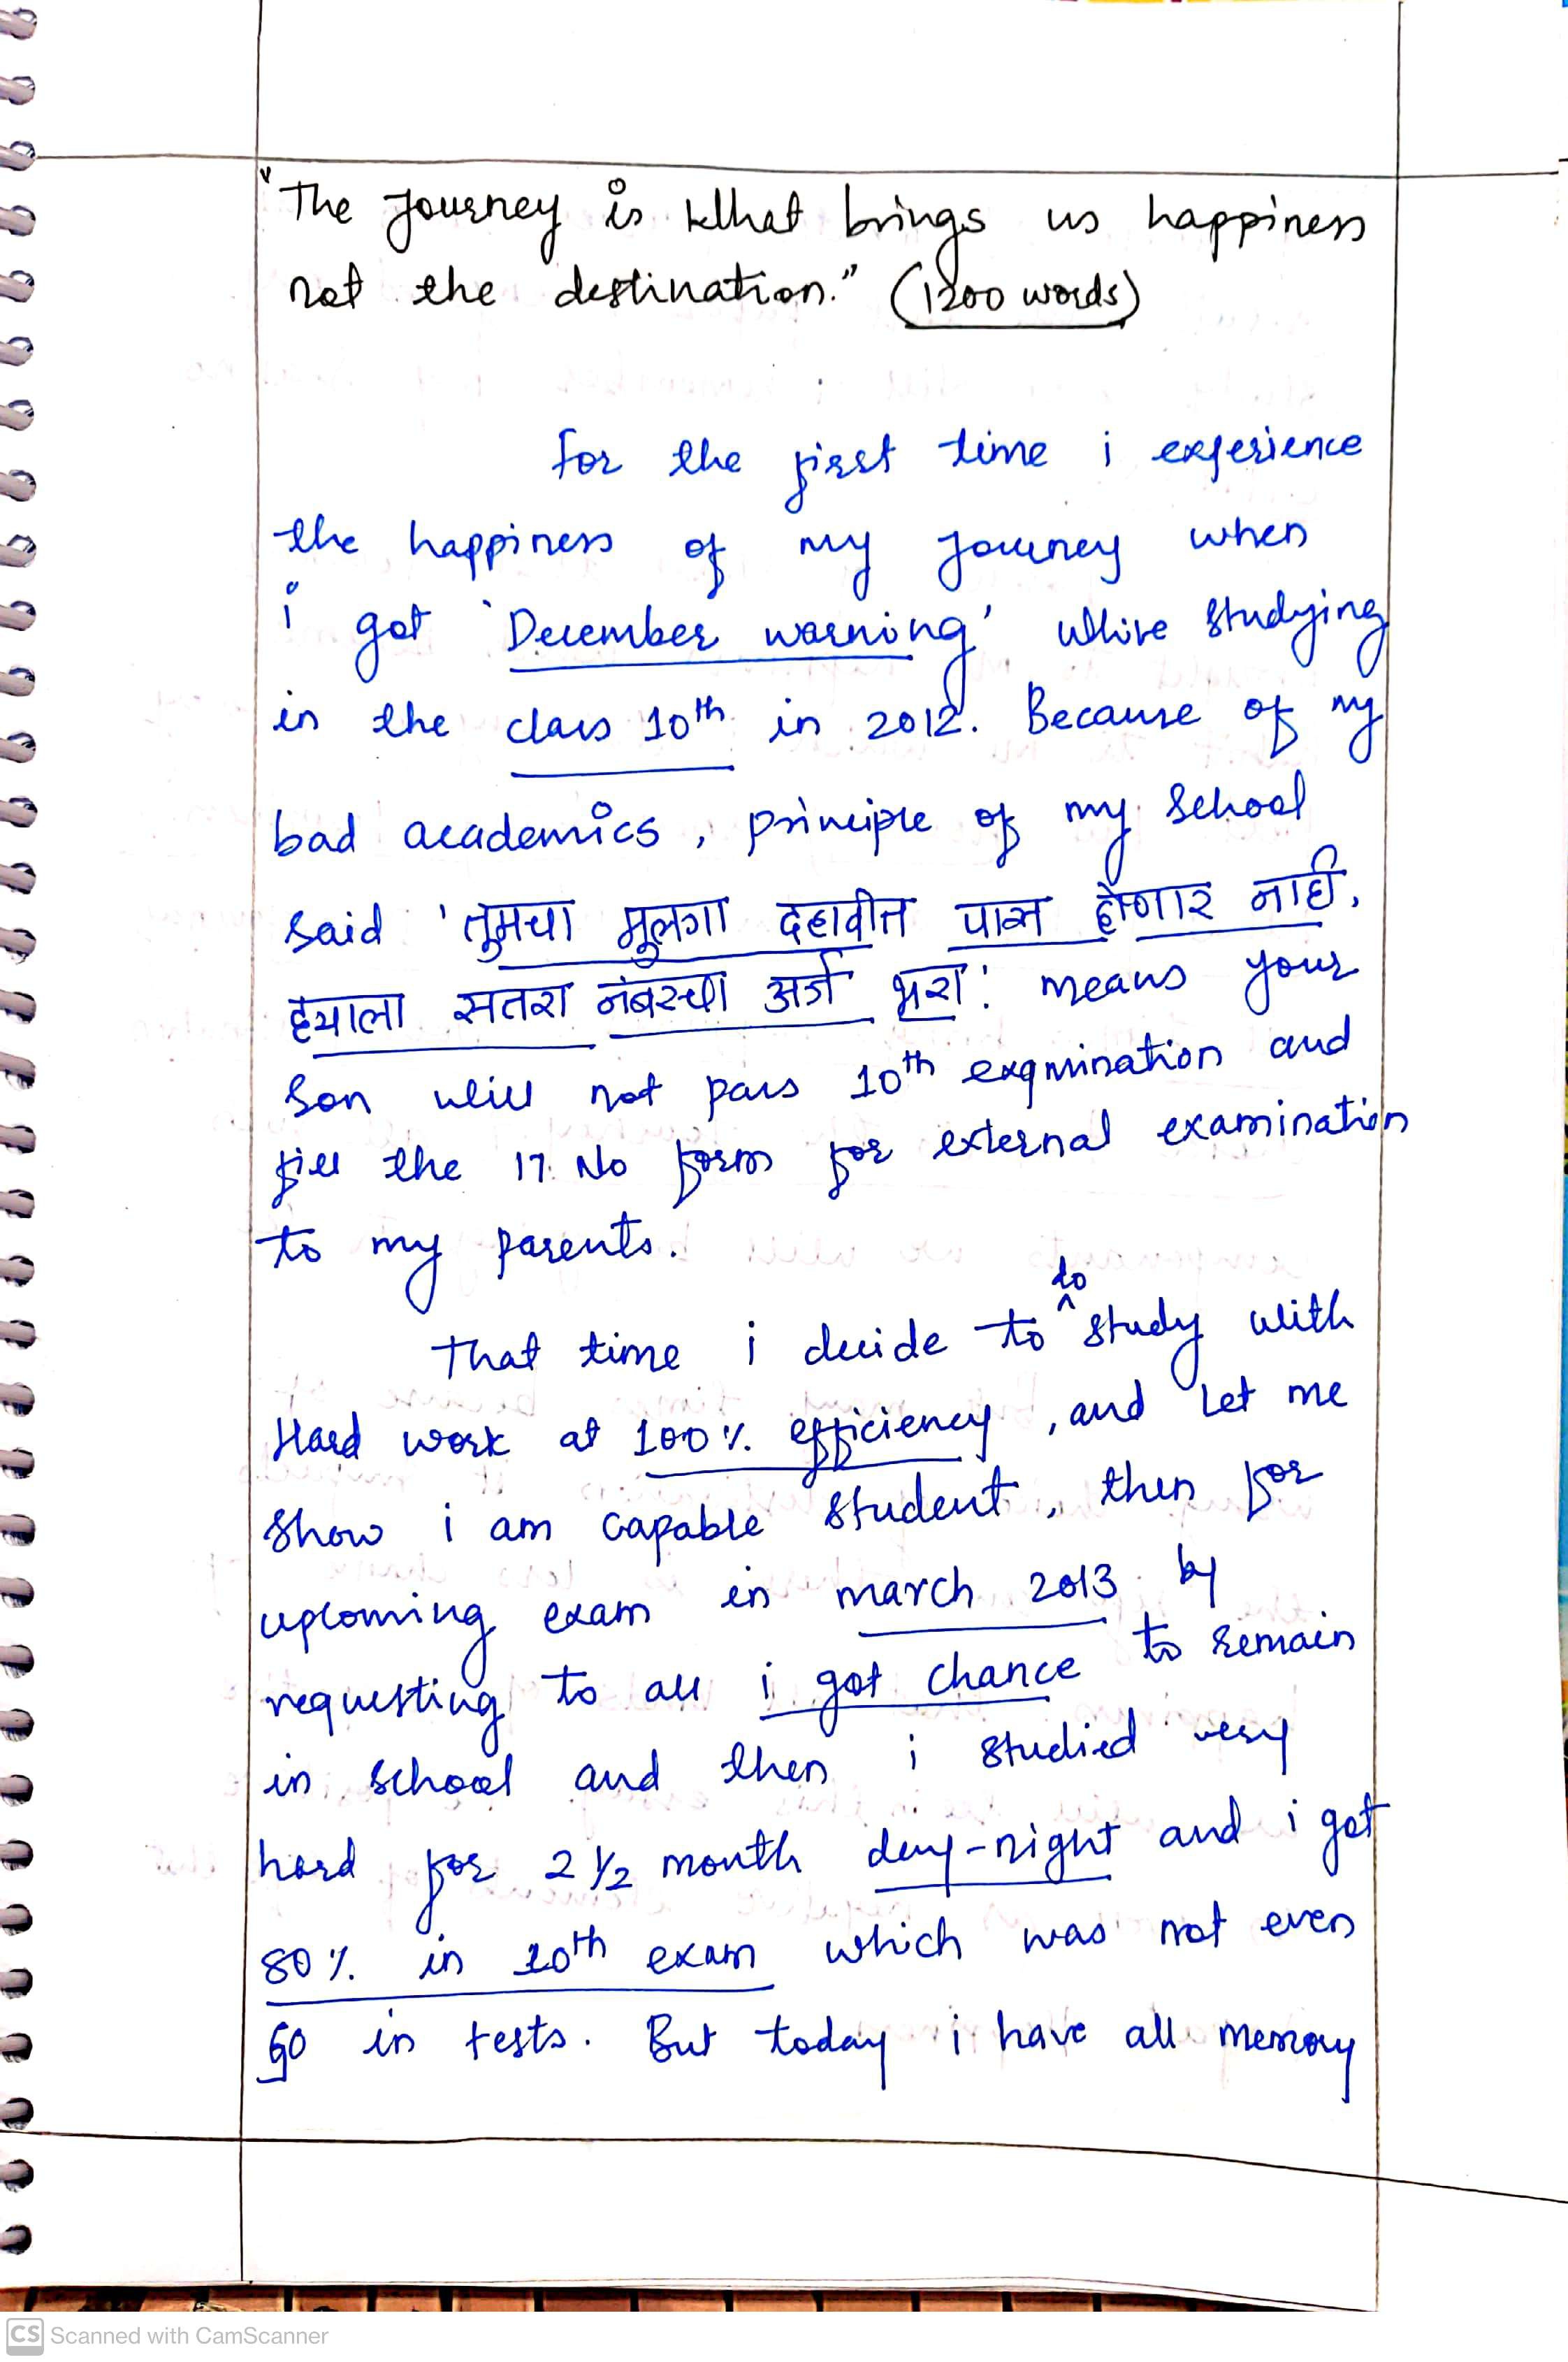 "The Journey is What brings us happiness
not the destination." (1200 words)
for the first time i experience
the happiness of my journey when
i got 'December warning' while studying
in the class 10th in 2012. Because of my
bad academics, principle of my School
said 'तुमचा मुलगा दहावीत पास होणार नाही,
ह्याला सतरा नंबरचा अर्ज भरा' means your
Son will not pass 10th examination and
fill the 17. No form for external examination
to my parents.
That time i decide to do study with
Hard work at 100% efficiency, and Let me
show i am capable student, then for
upcoming exam in march 2013 by
requesting to all i got chance to remain
in school and then i studied very
hard for 2 1/2 month day-night and i got
80% in 10th exam which was not even
60 in tests. But today i have all memory
CS Scanned with CamScanner